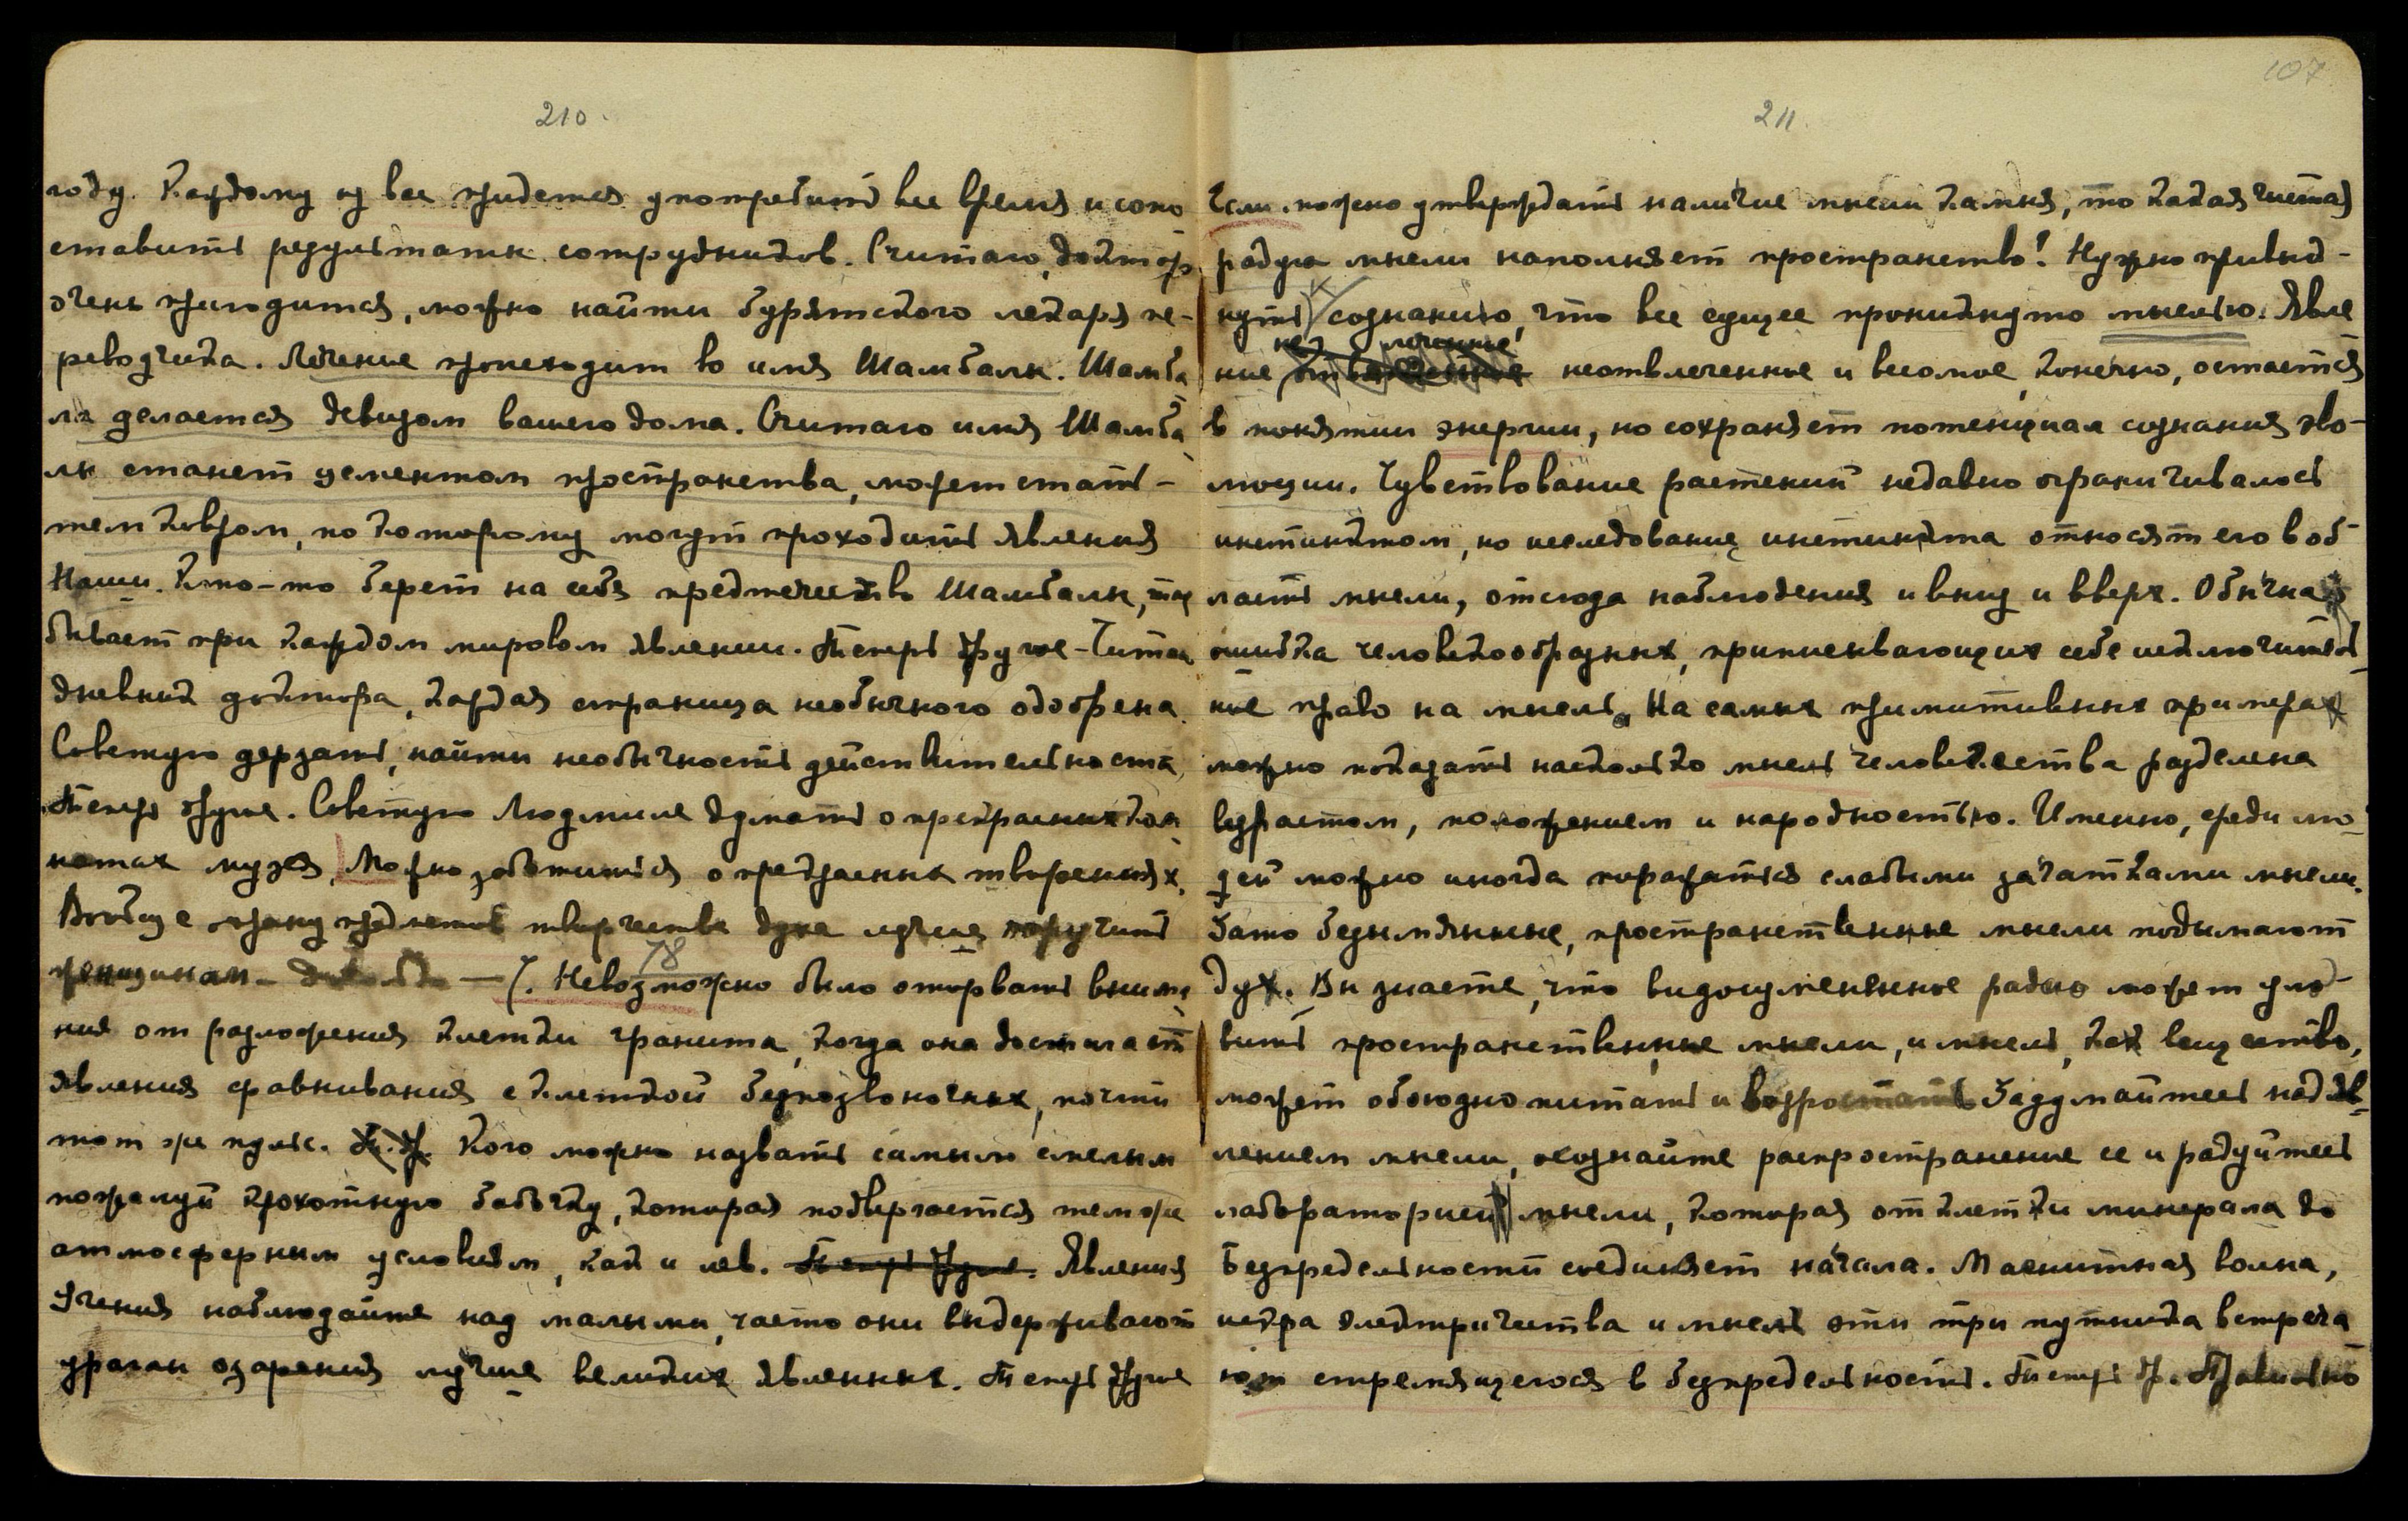 210.
году. Каждому из вас придется употребить все время и сопо
ставить результаты сотрудников. Считаю, доктор
очень пригодится, можно найти бурятского лекаря пе-
реводчика. Лечение происходит во имя Шамбалы. Шамба
ла делается девизом вашего дома. Считаю имя Шамба
лы станет цементом пространства, может стать
тем ковром, по которому могут проходить явления
Наши. Кто-то берет на себя предтечество Шамбалы, так
бывает при каждом мировом явлении. Теперь другое - Читая
дневник доктора, каждая страница необычного одобрена.
Советую дерзать, найти необычность действительности.
Теперь другое. Советую Людмиле думать о прекрасных ком
натах музея. Можно заботиться о предметных творениях.
Вообще охрану предметов творчества духа лучше поручить
женщинам. - довольно —
78
(. Невозможно было оторвать внима
ния от разложения клетки гранита, когда она достигает
явления сравнивания с клеткой безпозвоночных, почти
тот же пульс. Т. Д. Кого можно назвать самым смелым
пожалуй крохотную бабочку, которая подвергается тем же
атмосферным условиям, как и лев. Теперь другое. Явления
Учения наблюдайте над малыми, часто они выдерживают
ураган озарения лучше великих явленных. Теперь другое
107
211.
Если можно утверждать наличие мысли камня, то какая чистая
радуга мысли наполняет пространство! Нужно привык-
нуть сознанию, что все сущее проникнуто мыслью. Явле
ние неотвлеченное и весомое, конечно, остается
в понятии энергии, но сохраняет потенциал сознания эво-
люции. Чувствование растений недавно ограничивалось
инстинктом, но исследование инстинкта относят его в об-
ласть мысли, отсюда наблюдения и вниз и вверх. Обычная
ошибка человекообразных, приписывающих себе исключитель
ное право на мысль. На самых примитивных примерах
можно показать насколько мысль человечества разделена
возрастом, положением и народностью. Именно, среди лю-
дей можно иногда поражаться слабыми зачатками мысли.
Зато безымянные, пространственные мысли подымают
дух. Вы знаете, что видоизмененное радио может уло-
вить пространственные мысли, и мысль, как вещество,
может обоюдно питать и возростать. Задумайтесь над яв-
лением мысли, осознайте распространение ее и радуйтесь
лабораторией мысли, которая от клетки минерала до
Безпредельности соединяет начала. Магнитная волна,
искра электричества и мысль эти три путника встреча
ют стремящегося в безпредельность. Теперь Д. Правильно